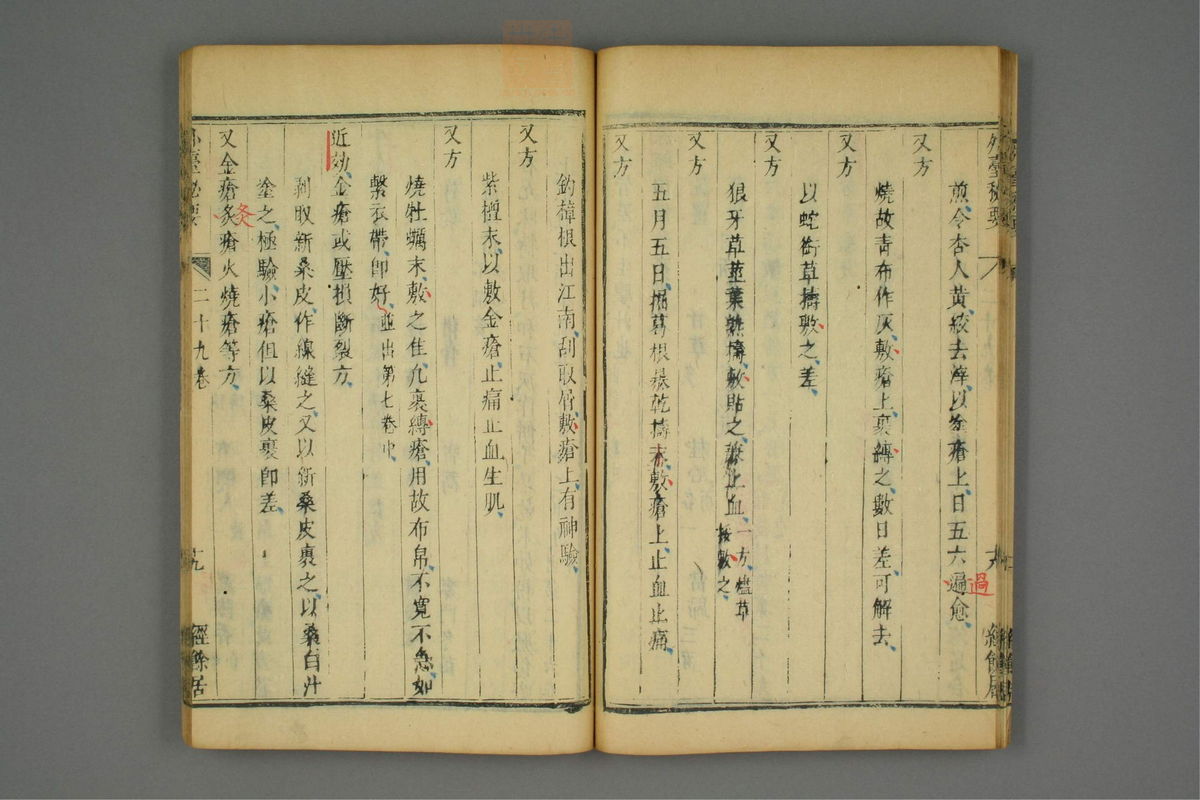 外臺秘要
煎令杏人黃絞去滓以塗瘡上日五六遍愈
過
又方
燒故青布作灰敷瘡上裹縛之數日差可解去
又方
以蛇銜草擣敷之差
又方
狼牙草莖葉熟擣敷貼之兼止血一方㯿草
挼敷之
又方
五月五日掘葛根暴乾擣末敷瘡上止血止痛
又方
釣樟根出江南刮取屑敷瘡上有神驗
又方
紫檀末以敷金瘡止痛止血生肌
又方
燒牡蠣末敷之佳凡裹縛瘡用故布帛不寬不急如
繫衣帶卽好並出第七卷中
近効金瘡或壓損斷裂方
剝取新桑皮作線縫之又以新桑皮裹之以桑白汁
塗之極驗小瘡但以桑皮裹卽差
又金瘡炙瘡火燒瘡等方
灸
外臺秘要
二十九卷
十九
經餘居